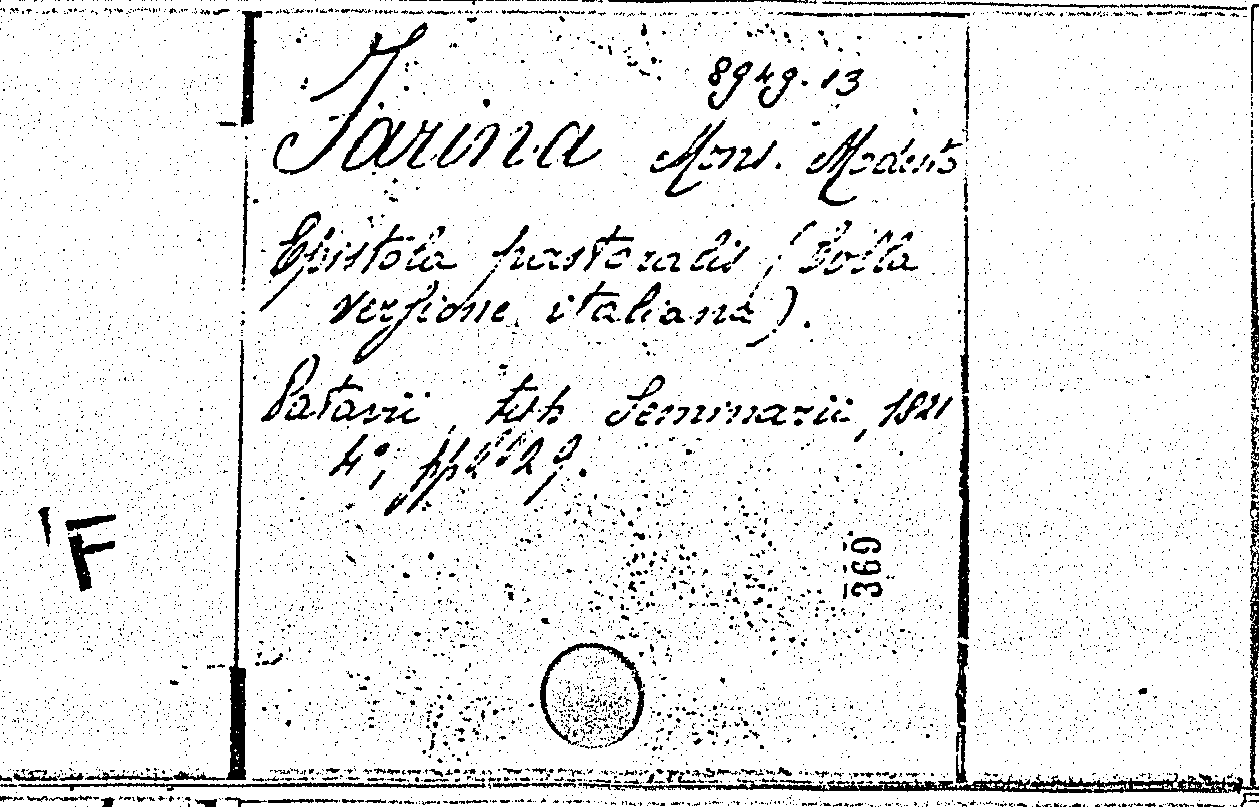 8949.13
Farina Mons. Modesto
Epistola pastoralis (Colla
versione italiana).
Patavii, typ. Seminarii, 1821
4°, pp.
369
F